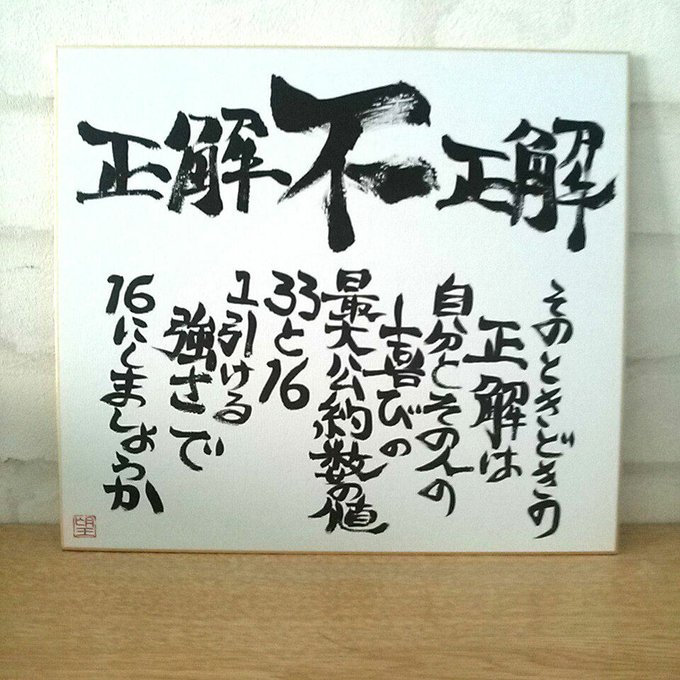 正解不正解
そのときどきの
正解は
自分とその人の
喜びの
最大公約数の値
33と16
1引ける
強さで
16にしましょうか
望